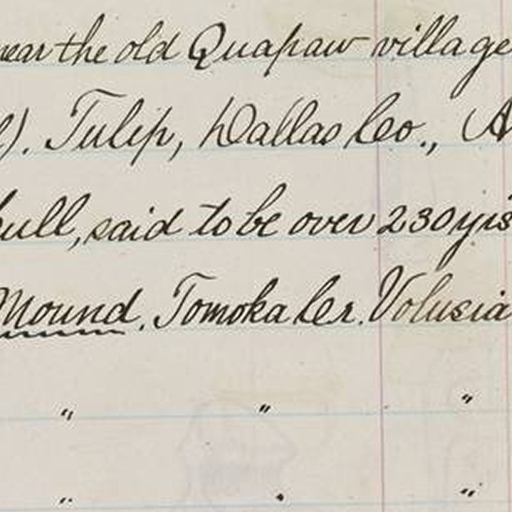 near the old Quapaw village
). Tulip, Dallas Co., A
ull, said to be over 230 yrs
Mound. Tomoka Cr. Volusia
" " "
" " "